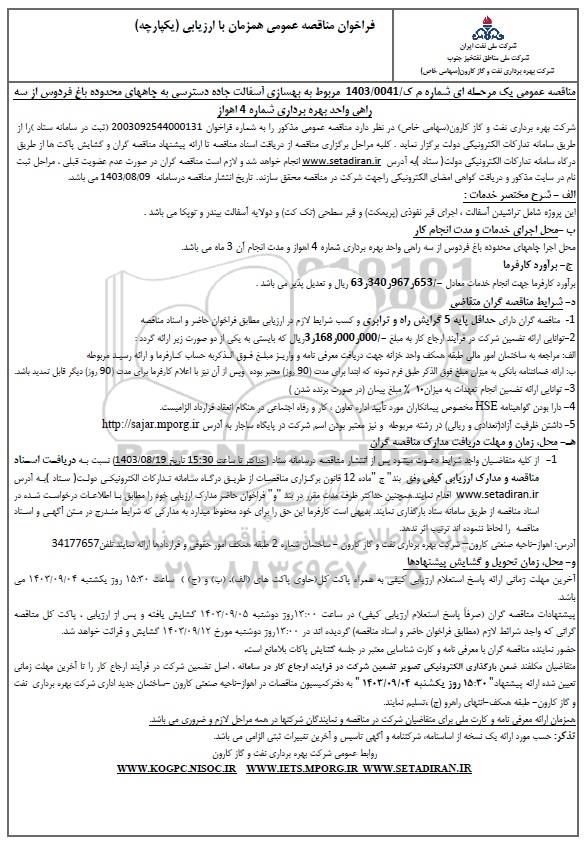 فراخوان مناقصه عمومی همزمان با ارزیابی (یکپارچه)
شرکت ملی نفت ایران
شرکت ملی مناطق نفتخیز جنوب
شرکت بهره برداری نفت و گاز کارون(سهامی خاص)
مناقصه عمومی یک مرحله ای شماره م ک/1403/0041 مربوط به بهسازی آسفالت جاده دسترسی به چاههای محدوده باغ فردوس از سه
راهی واحد بهره برداری شماره 4 اهواز
شرکت بهره برداری نفت و گاز کارون(سهامی خاص) در نظر دارد مناقصه عمومی مذکور را به شماره فراخوان 2003092544000131 (ثبت در سامانه ستاد )را از
طریق سامانه تدارکات الکترونیکی دولت برگزار نماید . کلیه مراحل برگزاری مناقصه از دریافت اسناد مناقصه تا ارائه پیشنهاد مناقصه گران و گشایش پاکت ها از طریق
درگاه سامانه تدارکات الکترونیکی دولت( ستاد )به آدرس www.setadiran.ir انجام خواهد شد و لازم است مناقصه گران در صورت عدم عضویت قبلی ، مراحل ثبت
نام در سایت مذکور و دریافت گواهی امضای الکترونیکی راجهت شرکت در مناقصه محقق سازند. تاریخ انتشار مناقصه درسامانه 1403/08/09 می باشد.
الف - شرح مختصر خدمات :
این پروژه شامل تراشیدن آسفالت ، اجرای قیر نفوذی (پریمکت) و قیر سطحی (تک کت) و دولایه آسفالت بیندر و توپکا می باشد .
ب -محل اجرای خدمات و مدت انجام کار
محل اجرا چاههای محدوده باغ فردوس از سه راهی واحد بهره برداری شماره 4 اهواز و مدت انجام آن 3 ماه می باشد.
ج- برآورد کارفرما
برآورد کارفرما جهت انجام خدمات معادل -/63٫340٫967٫653 ریال و تعدیل پذیر می باشد .
د- شرایط مناقصه گران متقاضی
1- مناقصه گران دارای حداقل پایه 5 گرایش راه و ترابری و کسب شرایط لازم در ارزیابی مطابق فراخوان حاضر و اسناد مناقصه
2-توانایی ارائه تضمین شرکت در فرآیند ارجاع کار به مبلغ -/3٫168٫000٫000ریال که بایستی به یکی از دو صورت زیر ارائه گردد :
الف: مراجعه به ساختمان امور مالی طبقه همکف واحد خزانه جهت دریافت معرفی نامه و واریز مبلغ فوق الذکربه حساب کارفرما و ارائه رسید مربوطه
ب: ارائه ضمانتنامه بانکی به میزان مبلغ فوق الذکر طبق فرم نمونه که ابتدا برای مدت (90 روز) معتبر بوده وپس از آن نیز با اعلام کارفرما برای مدت (90 روز) دیگر قابل تمدید باشد.
3- توانایی ارائه تضمین انجام تعهدات به میزان۱۰ ٪ مبلغ پیمان (در صورت برنده شدن )
4- دارا بودن گواهینامه HSE مخصوص پیمانکاران مورد تأیید اداره تعاون ، کار و رفاه اجتماعی در هنگام انعقاد قرارداد الزامیست.
5- داشتن ظرفیت آزاد(تعدادی و ریالی) در رشته مربوطه و نیز معتبر بودن اسم شرکت در پایگاه ساجار به آدرس http://sajar.mporg.ir
هـ- محل، زمان و مهلت دریافت مدارک مناقصه گران
1- از کلیه متقاضیان واجد شرایط دعوت میشود پس از انتشار مناقصه درسامانه ستاد (حداکثر تا ساعت 15:30 تاریخ 1403/08/19) نسبت به دریافت اسناد
مناقصه و مدارک ارزیابی کیفی وفق بند" ج "ماده 12 قانون برگزاری مناقصات از طریق درگاه سامانه تدارکات الکترونیکی دولت( ستاد )به آدرس
www.setadiran.ir اقدام نمایند.همچنین حداکثر ظرف مدت مقرر در بند "و" فراخوان حاضر مدارک ارزیابی خود را مطابق با اطلاعات درخواست شده در
اسناد مناقصه از طریق سامانه ستاد بارگذاری نمایند. بدیهی است کارفرما این حق را برای خود محفوظ میدارد به مدارکی که شرایط مندرج در متن آگهی و اسناد
مناقصه را لحاظ ننموده اند ترتیب اثر ندهد.
آدرس: اهواز-ناحیه صنعتی کارون- شرکت بهره برداری نفت و گاز کارون - ساختمان شماره 2 طبقه همکف امور حقوقی و قراردادها ارائه نمایند.تلفن34177657
و- محل، زمان تحویل و گشایش پیشنهادها
آخرین مهلت زمانی ارائه پاسخ استعلام ارزیابی کیفی به همراه پاکت کل(حاوی پاکت های (الف)، (ب) و (ج) ) ساعت ۱۵:۳۰ روز یکشنبه ۱۴۰۳/۰۹/۰۴ می
باشد.
پیشنهادات مناقصه گران (صرفاً پاسخ استعلام ارزیابی کیفی) در ساعت ۱۳:۰۰روز دوشنبه ۱۴۰۳/۰۹/۰۵ گشایش یافته و پس از ارزیابی ، پاکت کل مناقصه
گرانی که واجد شرائط لازم (مطابق فراخوان حاضر و اسناد مناقصه) گردیده اند در ۱۳:۰۰روز دوشنبه مورخ ۱۴۰۳/۰۹/۱۲ گشایش و قرائت خواهد شد.
حضور نماینده مناقصه گران با معرفی نامه و کارت شناسایی معتبر در جلسه گشایش پاکات بلامانع است.
متقاضیان مکلفند ضمن بارگذاری الکترونیکی تصویر تضمین شرکت در فرایند ارجاع کار در سامانه ، اصل تضمین شرکت در فرآیند ارجاع کار را تا آخرین مهلت زمانی
تعیین شده ارائه پیشنهاد" ۱۵:۳۰ روز یکشنبه ۱۴۰۳/۰۹/۰۴ " به دفترکمیسیون مناقصات در اهواز-ناحیه صنعتی کارون -ساختمان جدید اداری شرکت بهره برداری نفت
و گاز کارون- طبقه همکف-انتهای راهرو (ج) ،تسلیم نمایند.
همزمان ارائه معرفی نامه و کارت ملی برای متقاضیان شرکت در مناقصه و نمایندگان شرکتها در همه مراحل لازم و ضروری می باشد.
تذکر: حسب مورد ارائه یک نسخه از اساسنامه، شرکتنامه و آگهی تاسیس و آخرین تغییرات ثبتی الزامی می باشد.
روابط عمومی شرکت بهره برداری نفت و گاز کارون
WWW.KOGPC.NISOC.IR WWW.IETS.MPORG.IR WWW.SETADIRAN.IR